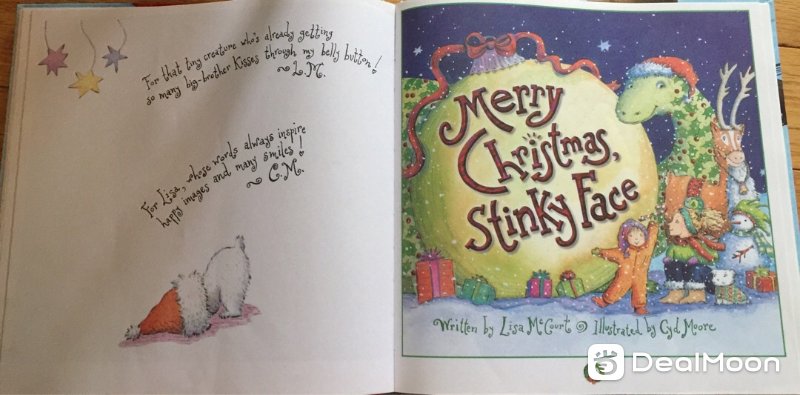 For that tiny creature who's already getting
so many big-brother kisses through my belly button!
~ L.M.
For Lisa, whose words always inspire
happy images and many smiles!
~ C.M.
Merry
Christmas,
Stinky Face
Written by Lisa McCourt Illustrated by Cyd Moore
DealMoon